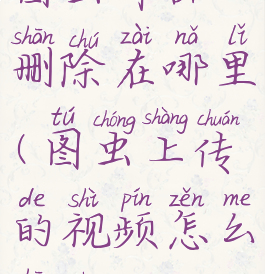 shān chú zài nǎ lǐ
删除在哪里
tú chóng shàng chuán
(图虫上传
de shì pín zěn me
的视频怎么